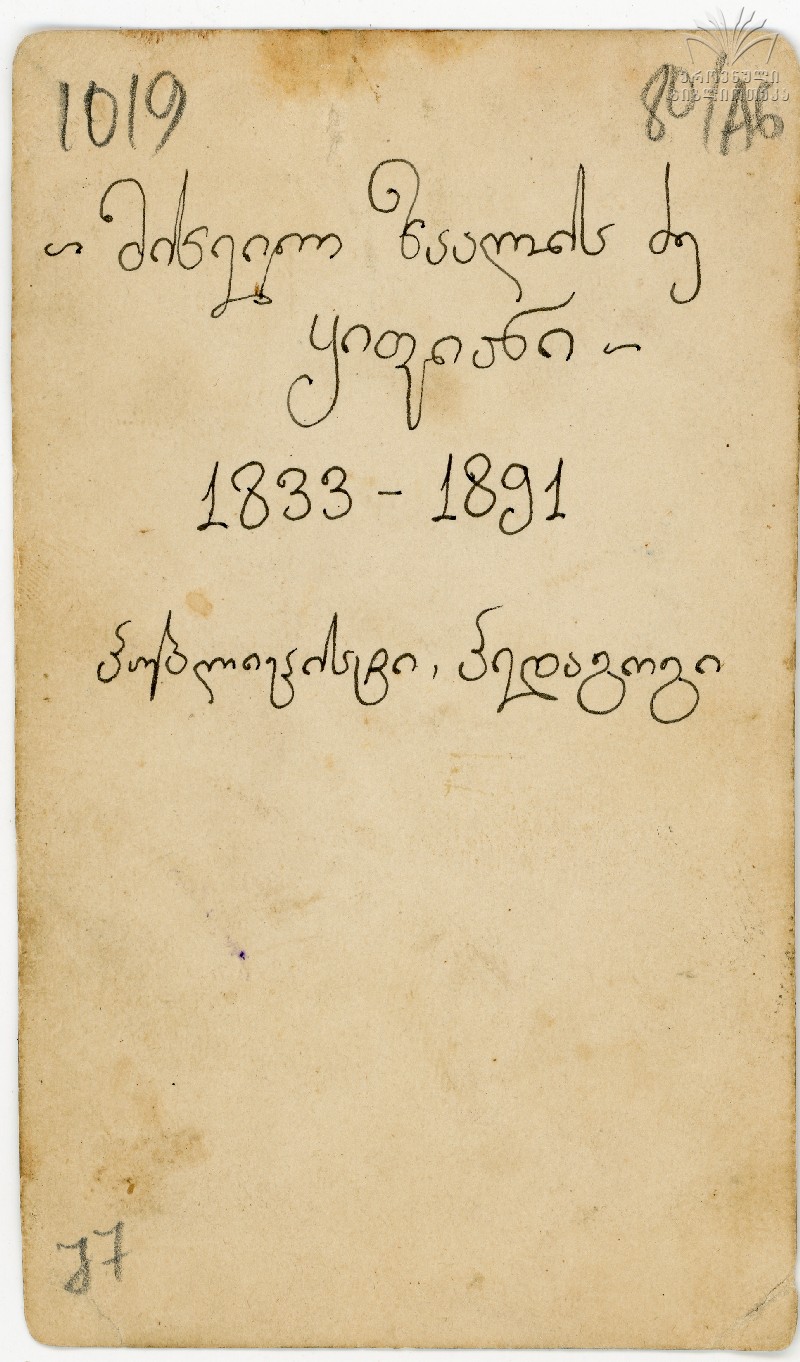 1019
ეროვნული
ბიბლიოთეკა
~ მიხეილ ზაალის ძე
ყიფიანი ~
1833 - 1891
პუბლიცისტი, პედაგოგი